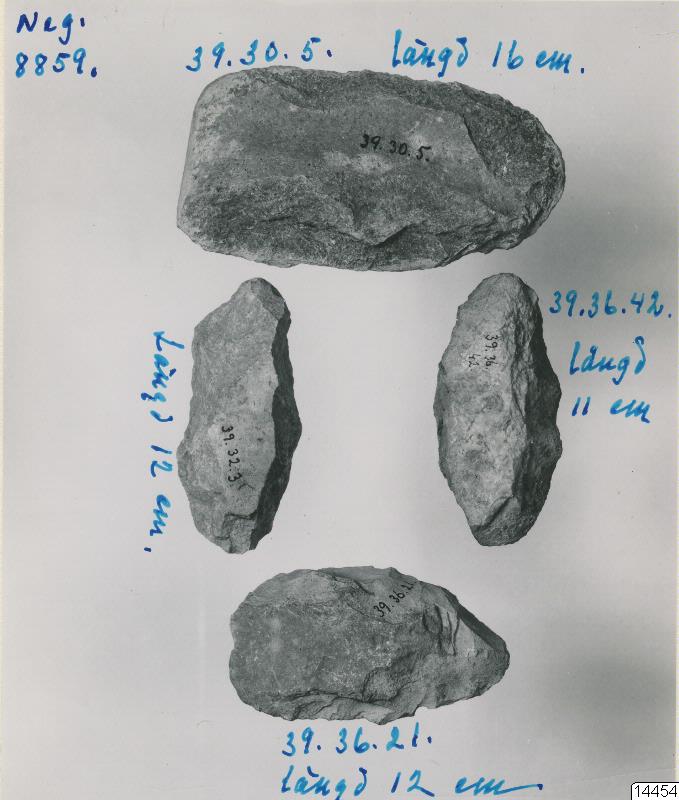 Neg.
8859.
39.30.5. längd 16 cm.
39.30.5.
39.36.42.
längd
11 cm
39.36
42.
Längd 12 cm.
39.32.3
39.36.21
39.36.21.
längd 12 cm
14454